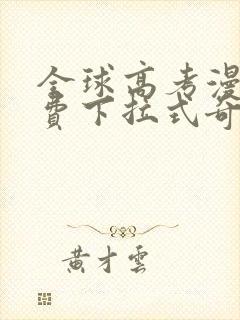 全球高考漫
费下拉式奇
黄才云